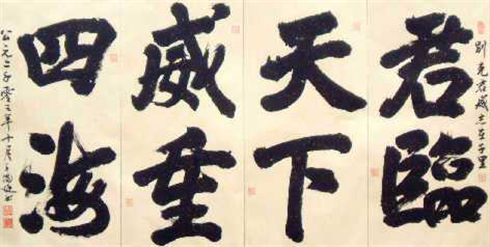 别克君威志在千里
君臨
天下
威垂
四海
公元二千零三年十月